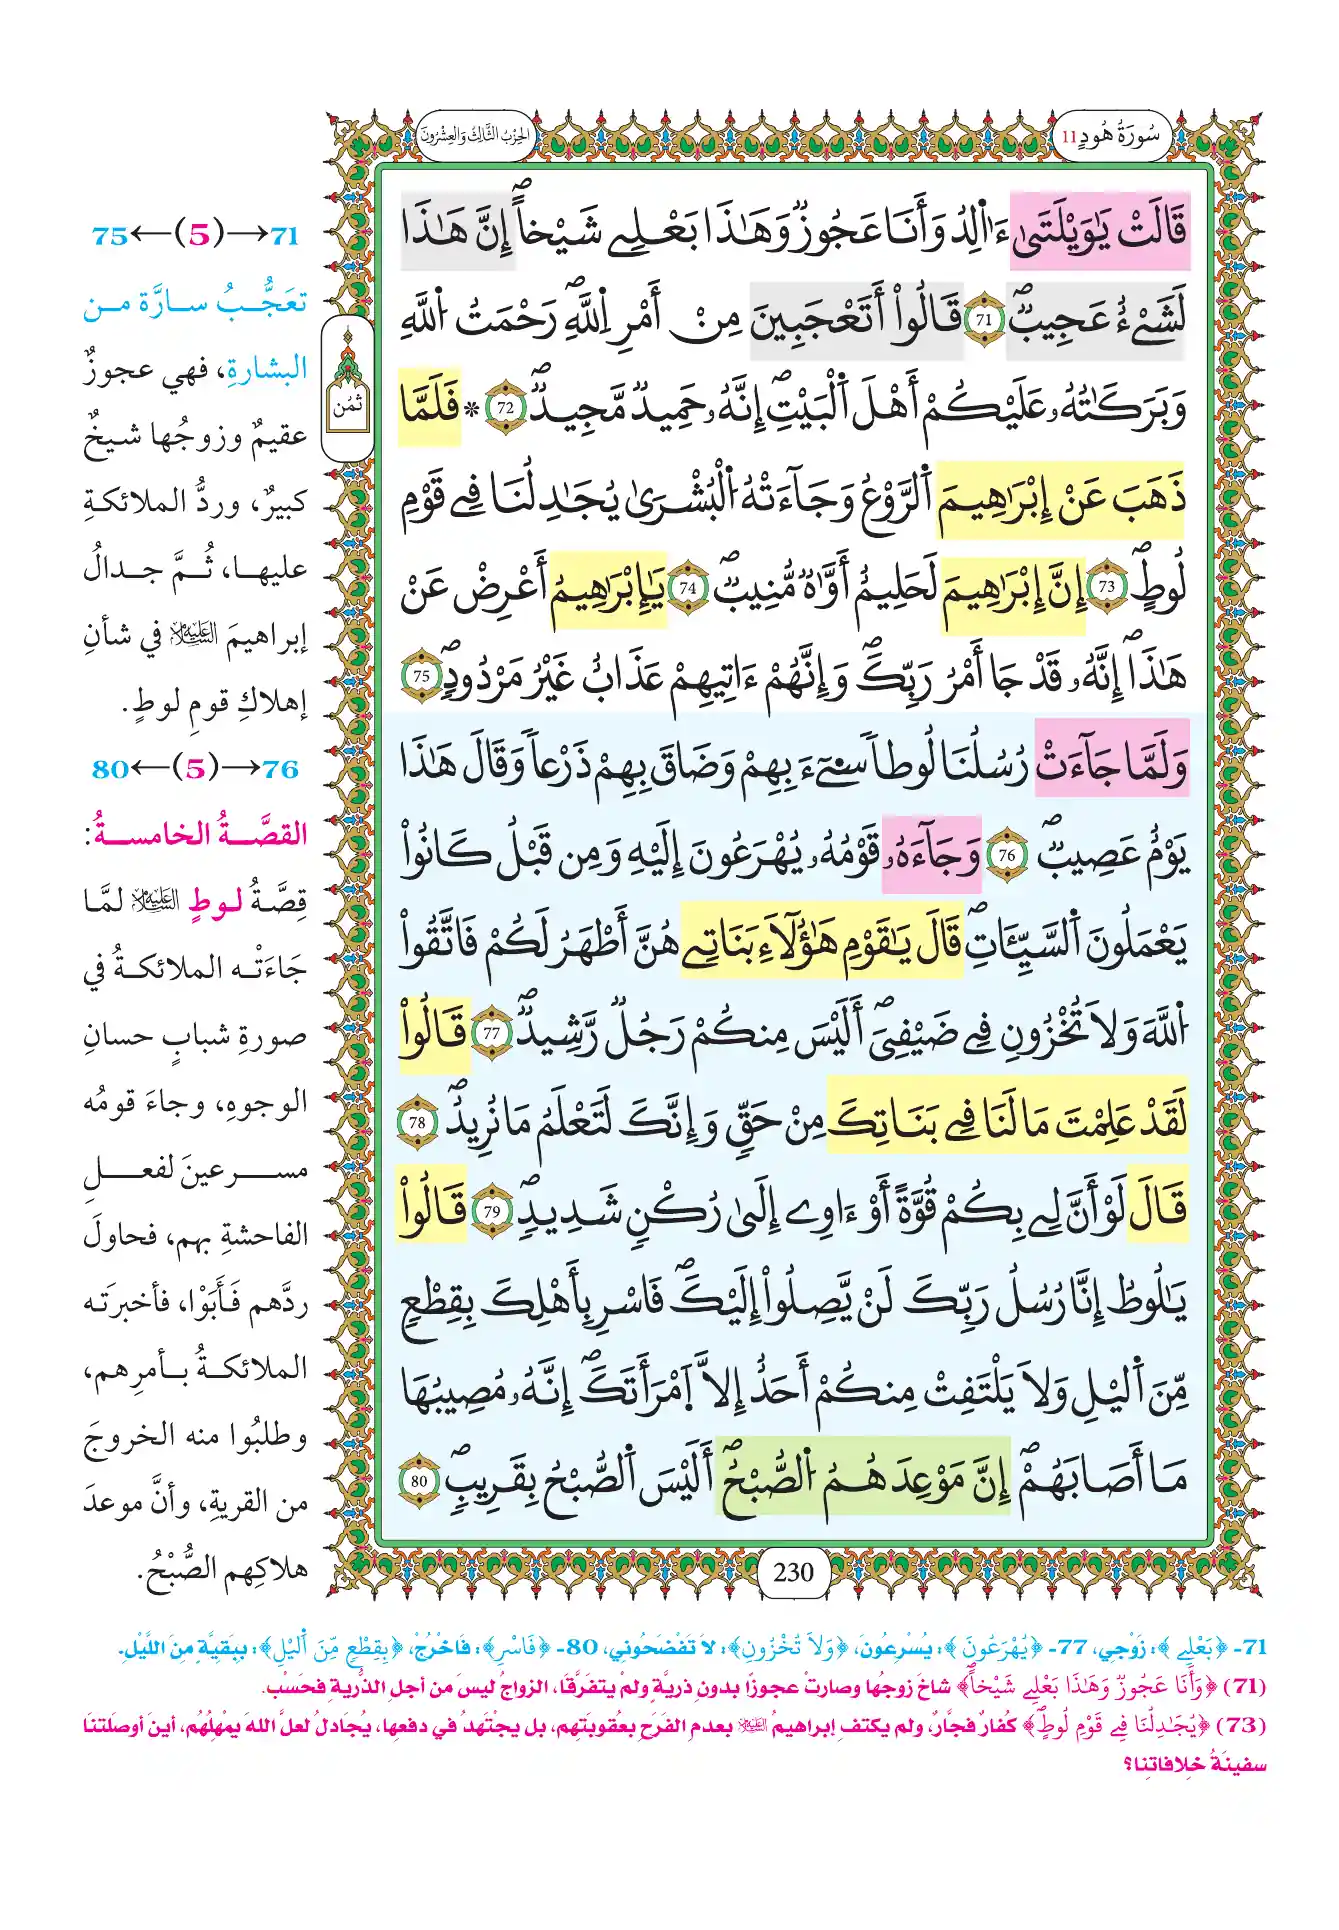 سُورَةُ هُودٍ 11
الحِزْبُ الثَّالِثُ وَالعِشْرُونَ
قَالَتْ يَٰوَيْلَتَىٰ ءَا۬لِدُ وَأَنَا عَجُوزٞ وَهَٰذَا بَعْلِے شَيْخاًۖ إِنَّ هَٰذَا
لَشَےْءٌ عَجِيبٞۖ 71 قَالُوٓاْ أَتَعْجَبِينَ مِنَ اَمْرِ اِ۬للَّهِۖ رَحْمَتُ اُ۬للَّهِ
وَبَرَكَٰتُهُۥ عَلَيْكُمْ أَهْلَ اَ۬لْبَيْتِۖ إِنَّهُۥ حَمِيدٞ مَّجِيدٞۖ 72 ۞ فَلَمَّا
ذَهَبَ عَنِ اِبْرَٰهِيمَ اَ۬لرَّوْعُ وَجَآءَتْهُ اُ۬لْبُشْرَىٰ يُجَٰدِلُنَا فِے قَوْمِ
لُوطٍۖ 73 إِنَّ إِبْرَٰهِيمَ لَحَلِيمٌ أَوَّٰهٞ مُّنِيبٞۖ 74 يَٰٓإِبْرَٰهِيمُ أَعْرِضْ عَنْ
هَٰذَاۖ إِنَّهُۥ قَدْ جَا أَمْرُ رَبِّكَۖ وَإِنَّهُمْ ءَاتِيهِمْ عَذَابٌ غَيْرُ مَرْدُودٖۖ 75
وَلَمَّا جَآءَتْ رُسُلُنَا لُوطاٗ سِےٓءَ بِهِمْ وَضَاقَ بِهِمْ ذَرْعاٗ وَقَالَ هَٰذَا
يَوْمٌ عَصِيبٞۖ 76 وَجَآءَهُۥ قَوْمُهُۥ يُهْرَعُونَ إِلَيْهِ وَمِن قَبْلُ كَانُواْ
يَعْمَلُونَ اَ۬لسَّيِّـَٔاتِۖ قَالَ يَٰقَوْمِ هَٰٓؤُلَآءِ بَنَاتِے هُنَّ أَطْهَرُ لَكُمْ فَاتَّقُواْ
اُ۬للَّهَ وَلَا تُخْزُونِ فِے ضَيْفِيَۖ أَلَيْسَ مِنكُمْ رَجُلٞ رَّشِيدٞۖ 77 قَالُواْ
لَقَدْ عَلِمْتَ مَا لَنَا فِے بَنَاتِكَ مِنْ حَقٍّ وَإِنَّكَ لَتَعْلَمُ مَا نُرِيدُۖ 78
قَالَ لَوْ أَنَّ لِے بِكُمْ قُوَّةً أَوْ ءَاوِے إِلَىٰ رُكْنٖ شَدِيدٖۖ 79 قَالُواْ
يَٰلُوطُ إِنَّا رُسُلُ رَبِّكَ لَنْ يَّصِلُوٓاْ إِلَيْكَۖ فَاسْرِ بِأَهْلِكَ بِقِطْعٖ
مِّنَ اَ۬ليْلِ وَلَا يَلْتَفِتْ مِنكُمْ أَحَدٌ إِلَّا اَ۪مْرَأَتَكَۖ إِنَّهُۥ مُصِيبُهَا
مَا أَصَابَهُمْۖ إِنَّ مَوْعِدَهُمُ اُ۬لصُّبْحُۖ أَلَيْسَ اَ۬لصُّبْحُ بِقَرِيبٖۖ 80
ثمُن
230
71→(5)←75
تعَجُّبُ سارَّة من
البشارةِ، فهي عجوزٌ
عقيمٌ وزوجُها شيخٌ
كبيرٌ، وردُّ الملائكةِ
عليها، ثُمَّ جدالُ
إبراهيمَ عليه السلام في شأنِ
إهلاكِ قومِ لوطٍ.
76→(5)←80
القصَّةُ الخامسةُ:
قِصَّةُ لوطٍ عليه السلام لمَّا
جَاءَتْه الملائكةُ في
صورةِ شبابٍ حسانِ
الوجوهِ، وجاءَ قومُه
مسرعينَ لفعلِ
الفاحشةِ بهم، فحاولَ
ردَّهم فَأَبَوْا، فأخبرَته
الملائكةُ بأمرِهم،
وطلبُوا منه الخروجَ
من القريةِ، وأنَّ موعدَ
هلاكِهم الصُّبْحُ.
71- ﴿بَعْلِے﴾: زَوْجِي، 77- ﴿يُهْرَعُونَ﴾: يُسْرِعُونَ، ﴿وَلَا تُخْزُونِ﴾: لَا تَفْضَحُونِي، 80- ﴿فَاسْرِ﴾: فَاخْرُجْ، ﴿بِقِطْعٖ مِّنَ اَ۬ليْلِ﴾: بِبَقِيَّةٍ مِنَ اللَّيْلِ.
(71) ﴿وَأَنَا عَجُوزٞ وَهَٰذَا بَعْلِے شَيْخاًۖ﴾ شاخَ زوجُها وصارتْ عجوزًا بدونِ ذريةٍ ولمْ يتفرَّقَا، الزواجُ ليسَ من أجلِ الذُّريةِ فحَسْب.
(73) ﴿يُجَٰدِلُنَا فِے قَوْمِ لُوطٍۖ﴾ كفارٌ فجَّارٌ، ولم يكتفِ إبراهيمُ عليه السلام بعدمِ الفَرَحِ بعُقوبتِهم، بل يجتهدُ في دفعِها، يُجَادلُ لعلَّ اللهَ يمْهِلُهُم، أينَ أوصلَتنَا
سفينةُ خلافاتِنا؟